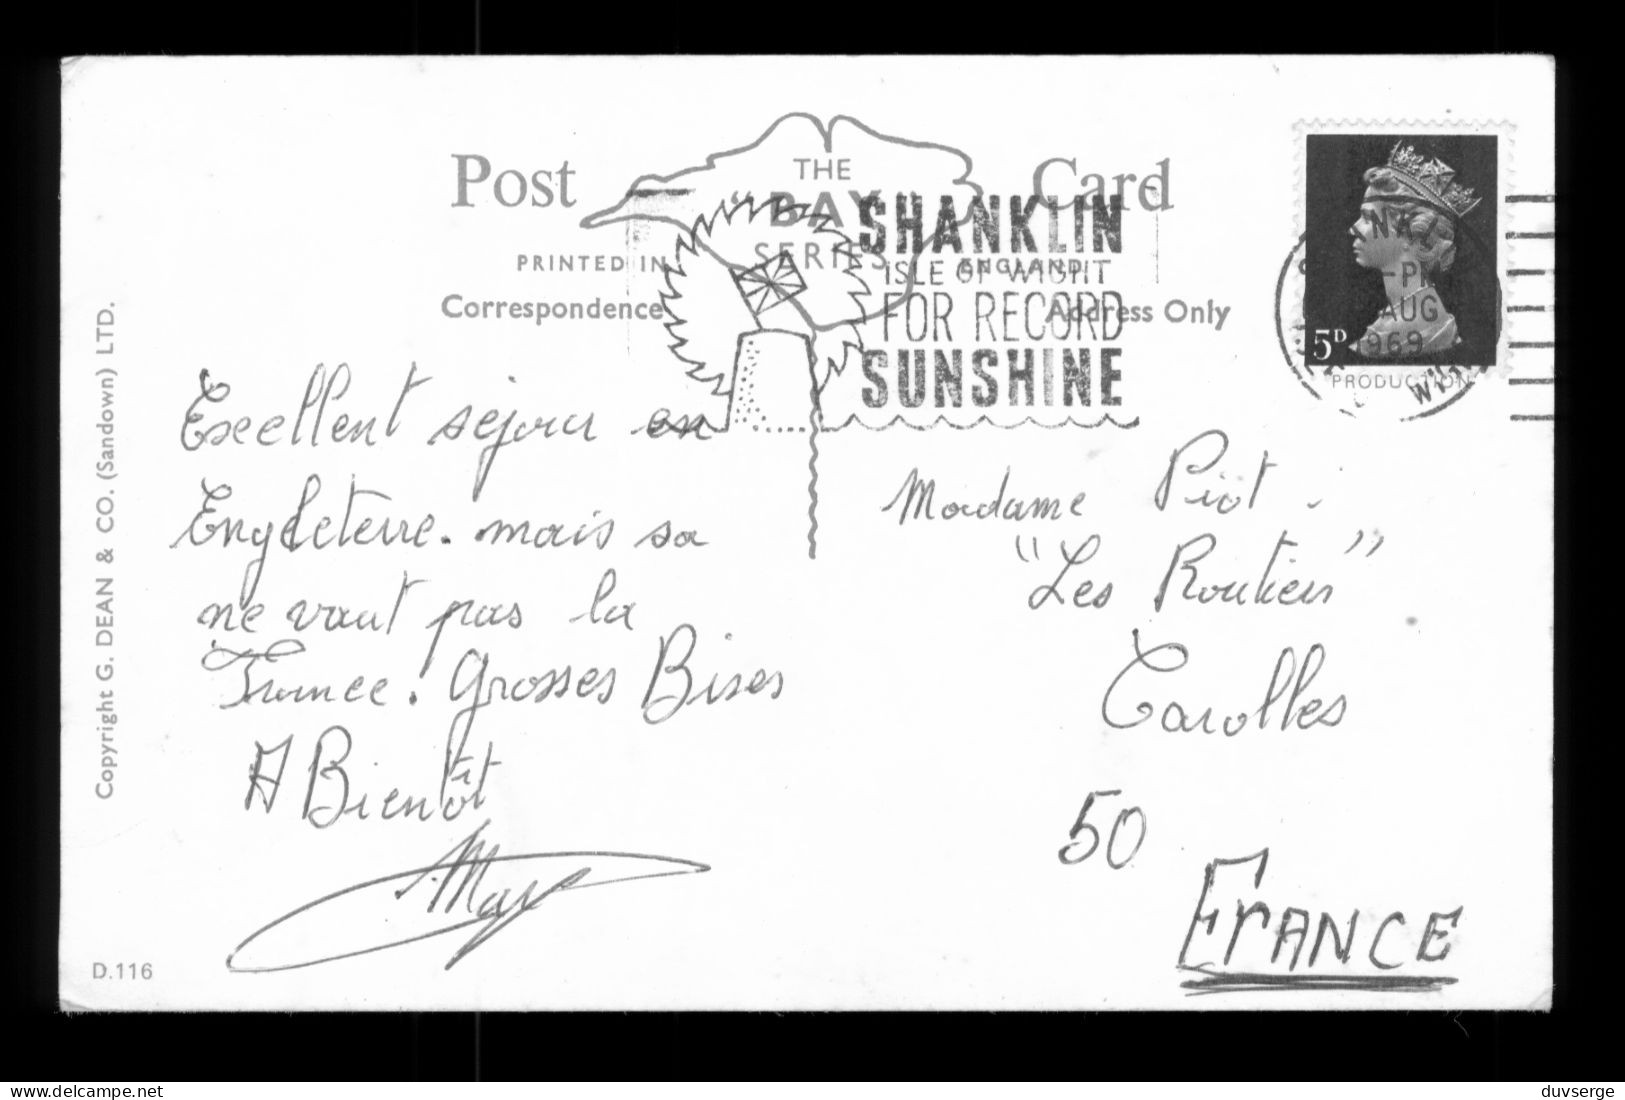 Post Card
THE
"BAY"
SERIES
PRINTED IN ENGLAND
Correspondence
Address Only
SHANKLIN
ISLE OF WIGHT
FOR RECORD
SUNSHINE
5D
-PM
AUG
1969
PRODUCTION
Copyright G. DEAN & CO. (Sandown) LTD.
D.116
Excellent sejour en
Engleterre. mais sa
ne vaut pas la
France. Grosses Bises
A Bientôt
Madame Piot.
"Les Routiers"
Carolles
50
FRANCE
delcampe.net
duvserge